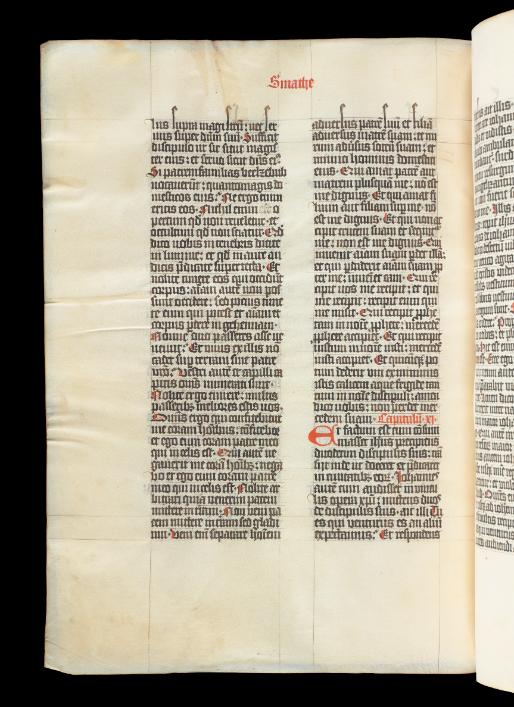 Smathe
lus supra magistrū: nec ser
uus super dūm suū. Sufficit
discipulo ut sit sicut magis
ter eius: et seruus sicut dūs eiꝰ.
Si patremfamilias beelzebub
uocauerūt: quantomagis do
mesticos eius. Ne ergo timu
eritis eos. Nichil enim o
pertum qd non reueletur: et
occultum qd non sciatur. Qd
dico uobis in tenebris dicite
in lumine: et qd in aure au
ditis p̄dicate super tecta. Et
nolite timere eos qui occidūt
corpus: aīam autē non pos
sunt occidere: sed potius time
te eum qui potest et aīam et
corpus pdere in gehennam.
Nonne duo passeres asse ue
neunt: Et unus ex illis nō
cadet sup terram sine patre
vr̄o: Vestri autē et capilli ca
pitis oīs numerati sunt.
Nolite ergo timere: multis
passeribꝫ meliores estis uos.
Omnis ergo qui confitebitur
me coram hoībus: confitebor
et ego eum coram patre meo
qui in celis est. Qui autē ne
gauerit me corā hoībꝫ: nega
bo et ego eum coram patre
meo qui in celis est. Nolite ar
bitrari quia uenerim pacem
mittere in terrā. Non ueni pa
cem mittere in terrā sed gladi
um. Veni em̄ separare hoīem
aduersus patrē suū: et filiā
aduersus matrē suam: et nu
rum aduersus socrū suam: et
inimici hominis domestici
eius. Qui amat patrē aut
matrem plusquā me: nō est
me dignus. Et qui amat fi
lium aut filiam super me: nō
est me dignus. Et qui non ac
cipit crucem suam et sequit̄
me: non est me dignus. Qui
inuenit aīam suam pdet illā:
et qui pdiderit aīam suam pp
ter me: inueniet eam. Qui re
cipit uos me recipit: et qui
me recipit: recipit eum qui
me misit. Qui recipit pphe
tam in noīe pphete: mercedē
pphete accipiet. Et qui recipit
iustum in noīe iusti: mercedē
iusti accipiet. Et quicūqꝫ po
tum dederit uni ex minimis
istis calicem aque frigide tm̄
tum in noīe discipuli: amen
dico uobis: non perdet mer
cedem suam. Capitulū xi.
Et factum est cum consum
masset ihesus precipiens
duodecim discipulis suis: trā
sijt inde ut doceret et p̄dicaret
in ciuitatibꝫ eoꝝ. Iohannes
autē cum audisset in uincu
lis opera xp̄i: mittens duos
de discipulis suis: ait illi Tu
es qui uenturus es an aliū
expectamus: Et respondens